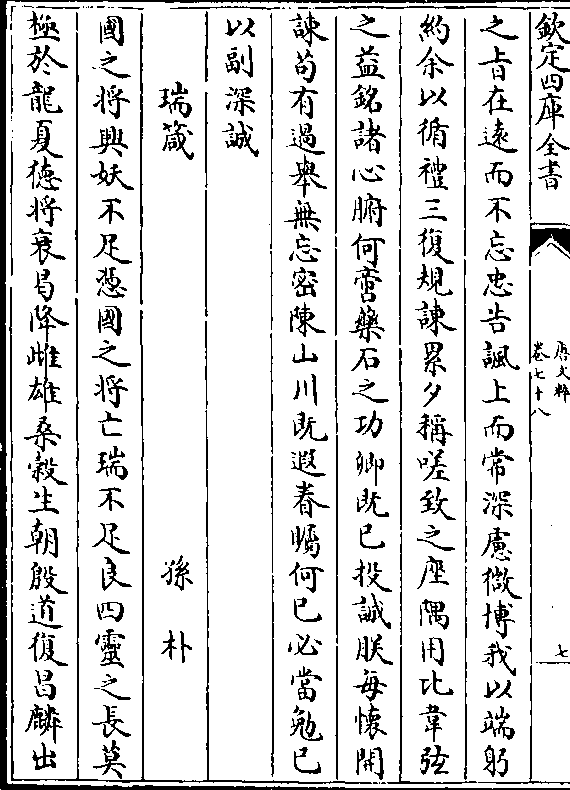 欽定四庫全書
唐文粹
卷七十八
七
之旨在遠而不忘忠告諷上而常深慮㣲博我以端躬
約余以循禮三復規諫累夕稱嗟致之座隅用比韋弦
之益銘諸心腑何啻藥石之功卿既已投誠朕每懐開
諫茍有過舉無忘密陳山川既遐眷矚何已必當勉已
以副深誠
瑞箴
孫朴
國之将興妖不足慿國之将亡瑞不足良四靈之長莫
極於龍夏徳将衰曷降雌雄桑榖生朝殷道復昌麟出